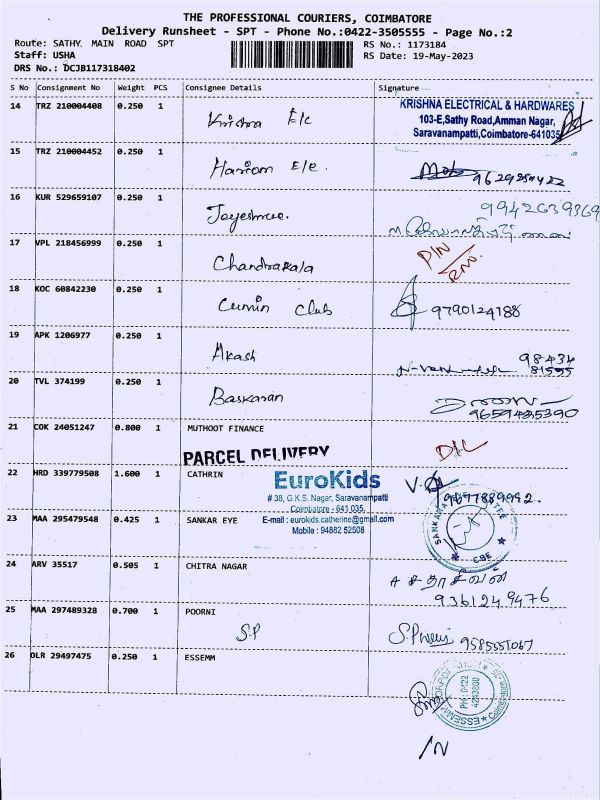 THE PROFESSIONAL COURIERS, COIMBATORE
Delivery Runsheet - SPT - Phone No.:0422-3505555 - Page No.:2
Route: SATHY MAIN ROAD SPT
RS No.: 1173184
Staff: USHA
RS Date: 19-May-2023
DRS No.: DCJB117318402
S No Consignment No Weight PCS Consignee Details Signature
14 TRZ 210004408 0.250 1 Krishna E/c
KRISHNA ELECTRICAL & HARDWARES
103-E,Sathy Road,Amman Nagar,
Saravanampatti,Coimbatore-641035
15 TRZ 210004452 0.250 1 Hariom E/e.
16 KUR 529659107 0.250 1 Jayeshree.
9942639369
17 VPL 218456999 0.250 1 Chandrakala
18 KOC 60842230 0.250 1 Cumin Club 9790124188
19 APK 1206977 0.250 1 Akash
98434
81555
20 TVL 374199 0.250 1 Baskaran
9659485390
21 COK 24051247 0.800 1 MUTHOOT FINANCE
D/L
PARCEL DELIVERY
22 HRD 339779508 1.600 1 CATHRIN
EuroKids
# 38, G.K.S. Nagar, Saravanampatti
Coimbatore - 641 035.
E-mail : eurokids.catherine@gmail.com
Mobile : 94882 52508
9677889992.
23 MAA 295479548 0.425 1 SANKAR EYE
CBE
24 ARV 35517 0.505 1 CHITRA NAGAR
A சதாசிவன்
9361249476
25 MAA 297489328 0.700 1 POORNI
S.P
9585551067
26 DLR 29497475 0.250 1 ESSEMM
PH: 0422
Coimbatore
/N